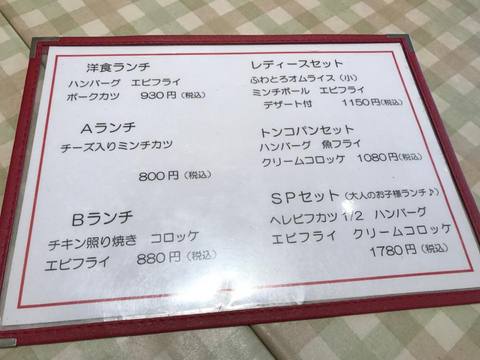 洋食ランチ
ハンバーグ　エビフライ
ポークカツ　930円（税込）
Aランチ
チーズ入りミンチカツ
800円（税込）
Bランチ
チキン照り焼き　コロッケ
エビフライ　880円（税込）
レディースセット
ふわとろオムライス（小）
ミンチボール　エビフライ
デザート付　1150円（税込）
トンコパンセット
ハンバーグ　魚フライ
クリームコロッケ　1080円（税込）
SPセット（大人のお子様ランチ♪）
ヘレビフカツ1/2　ハンバーグ
エビフライ　クリームコロッケ
1780円（税込）